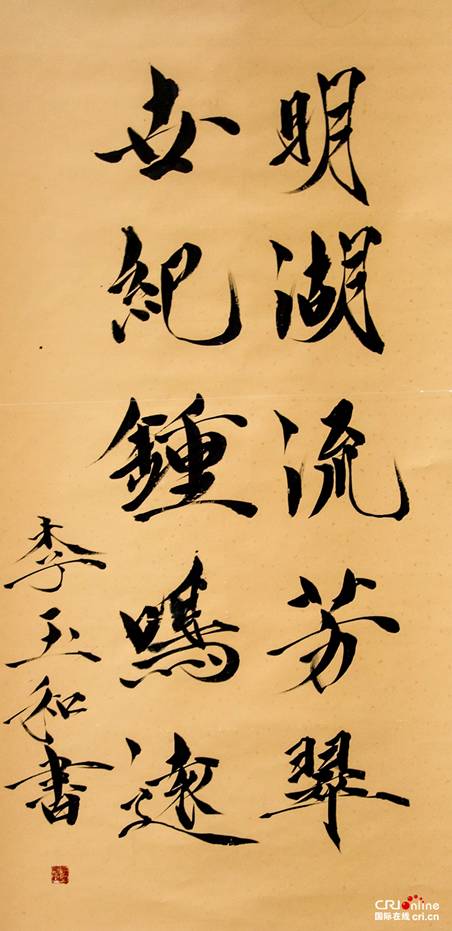 明湖流芳翠
世紀鍾鳴遠
李玉和書
CRIonline
国际在线 cri.cn